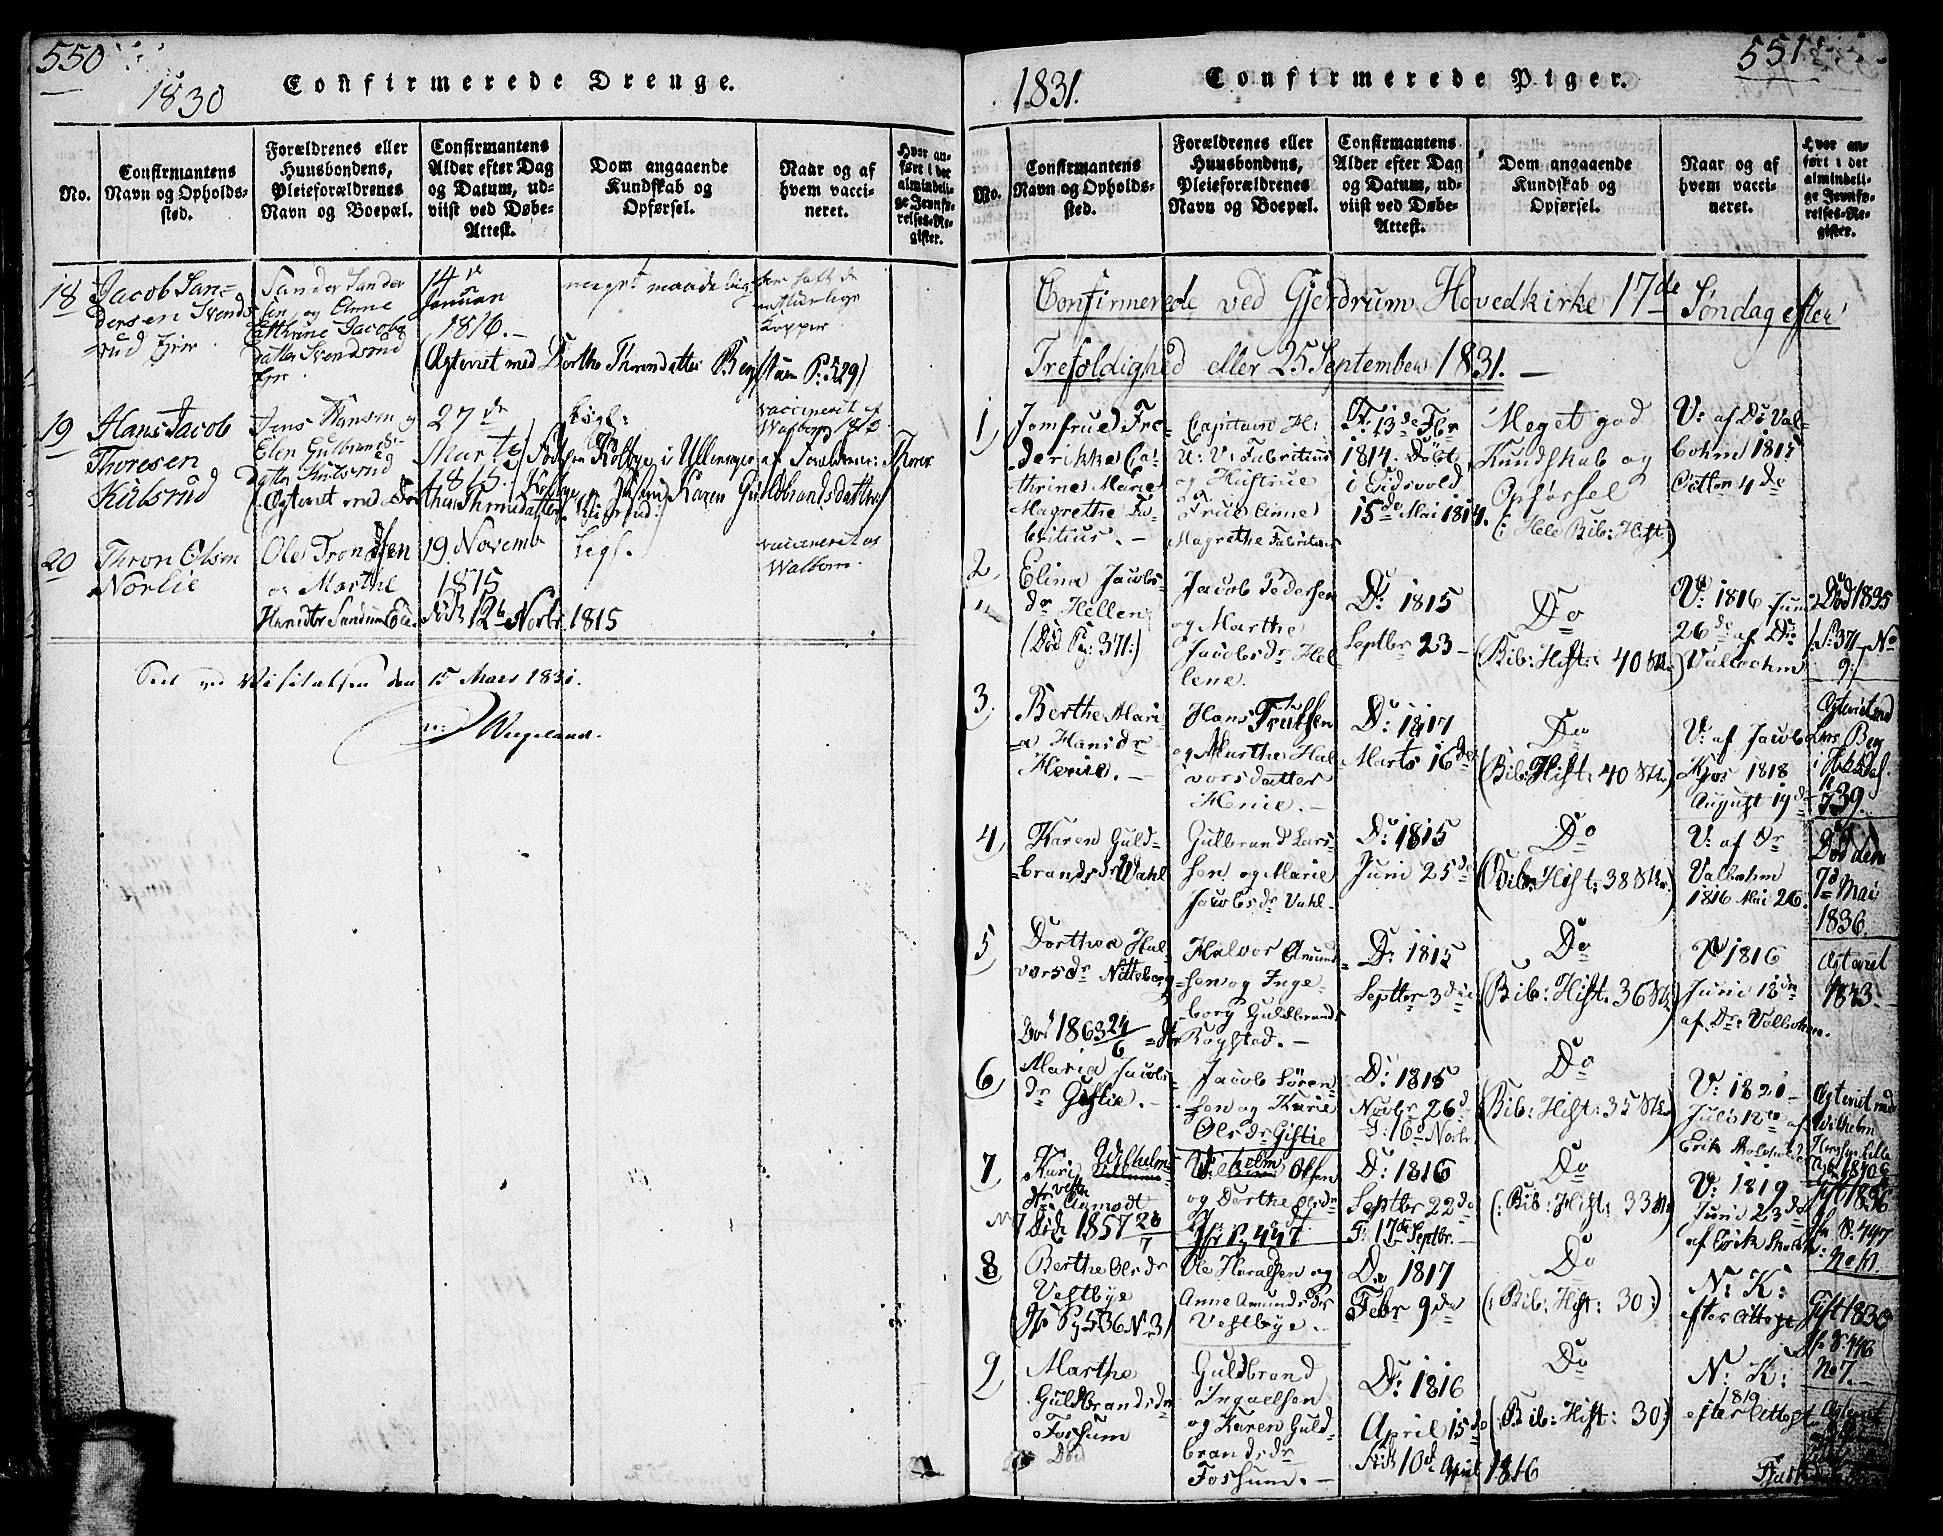 550
1830
Confirmerede Drenge.
No.
Confirmantens
Navn og Opholds-
sted.
Forældrenes eller
Huusbondens,
Pleieforældrenes
Navn og Boepæl.
Confirmantens
Alder efter Dag
og Datum, ud-
viist ved Døbe-
Attest.
Dom angaaende
Kundskab og
Opførsel.
Naar og af
hvem vacci-
neret.
Hvor an-
ført i det
almindeli-
ge Jevnfø-
relses-Re-
gister.
18
Jacob San-
dersen Svends
rud
Sander Sander
sen og Anne
Cathrine Jacobs
datter Svendsrud
14de
Januari
1816.
meget maadelig
har haft de
naturlige
Kopper
(Ægteviet med Dorthe Throndatter Pag. 529)
19
Hans Jacob
Thoresen
Kulsrud
Jens Hansen og
Elen Gulbrands
datter Kulsrud
27de
Marts
1815.
ligl:
vaccineret af
Walbom 1816
Ullensager af Forældrene: Thorer
Karen Guldbrandsdatter
20
Thron Olsen
Norlie
Ole Trondsen
og Marthe
19 Novemb
1815
ligl.
vaccineret af
Walbom.
Født 12te Novbr. 1815
Seet ved Visitatsen den 15 Mars 1831.
Wergeland.
551
1831.
Confirmerede Piger.
No.
Confirmantens
Navn og Opholds-
sted.
Forældrenes eller
Huusbondens,
Pleieforældrenes
Navn og Boepæl.
Confirmantens
Alder efter Dag
og Datum, ud-
viist ved Døbe-
Attest.
Dom angaaende
Kundskab og
Opførsel.
Naar og af
hvem vacci-
neret.
Hvor an-
ført i det
almindeli-
ge Jevnfø-
relses-Re-
gister.
Confirmerede ved Gjerdrum Hovedkirke 17de Søndag efter
Trefoldighed eller 25 September 1831.
1
Jomfrue Fre-
derikke Ca-
thrine Marie
Magrethe Fa-
britius.
Capitain H:
U: V: Fabritius
og Hustrue
Frue Anne
Magrethe Fabritius
F: 13de Fbr
1814. Døbt
i Eidsvold
15de Mai 1814.
Meget god
Kundskab og
Opførsel
(: Hele Bib: Hist:)
V: af Dr Val-
bohm 1815
Octbr 4de
2
Elina Jacobs-
dr Hellen
(Død Pag: 371:)
Jacob Pedersen
og Marthe
Jacobsdr Hel-
lene.
D: 1815
Septbr 23
Do
(Bib: Hist: 40 Stk:)
V: 1816 Juni
26de af Dr
Valbohm
Død 1835
(: P: 371 No
9:)
3
Berthe Mari
a Hansdr
Henie.
Hans Trulsen
og Marthe Hal
vorsdatter
Henie.
D: 1817
Marts 16de
Do
(Bib: Hist: 40 Stk:)
V: af Jacob
Kjos 1818
August 19de
Ægteviet med
Lars Berg
1839.
4
Karen Guld-
brandsdr Wahl
Gulbrand Lars
sen og Marie
Jacobsdr Vahl
D: 1815
Juni 25de
Do
(Bib: Hist: 38 Stk:)
V: af Dr
Valbohm
1816 Mai 26.
Død den
7de Mai
1836.
5
Dorthea Hal-
vorsdr Nitteberg
Død 1863 24/6
Halvor Amund-
sen og Inge-
borg Guldbrands
dr Rogstad.
D: 1815
Septbr 3die
Do
(Bib: Hist: 36 Stk:)
V 1816
Juni 18de
af Dr: Valbohm.
Ægteviet
1843.
6
Maria Jacobs-
dr Gistie.
Jacob Søren-
sen og Karie
Olsdr Gistie
D: 1815
Novbr 26d
F: 16d Novbr
Do
(Bib: Hist: 35 Stk:)
V: 1821
Juli 12te af
Erik
Ægteviet med
Wilhelm
7
Kari Wilhelms
dr Aamodt
Død 1857 28/7
Wilhelm Olsen
og Dorthe Olsdr
Pag 447
D: 1816
Septbr 22de
F: 17de Septbr.
Do
(: Bib: Hist: 33 Stk
V: 1819
Juni 23de
af Erik
Gift 1836
P: 447
No 11.
8
Berthe Olsdr
Vestbye
536 No 3)
Ole Haralsen og
Anne Amundsdr
Vestbye.
Do 1817
Febr 9de
Do
(: Bib: Hist: 30:)
N: K:
efter Attest
Gift 1836
P: 446
No 7.
9
Marthe
Guldbrandsdr
Fossum
Død
Guldbrand
Ingaelsen
og Karen Guld-
brandsdr
Fossum.
D: 1816
April 15de
Født 10de April 1816
Do
(Bib: Hist: 30:)
N: K:
1819
efter Attest
Ægteviet